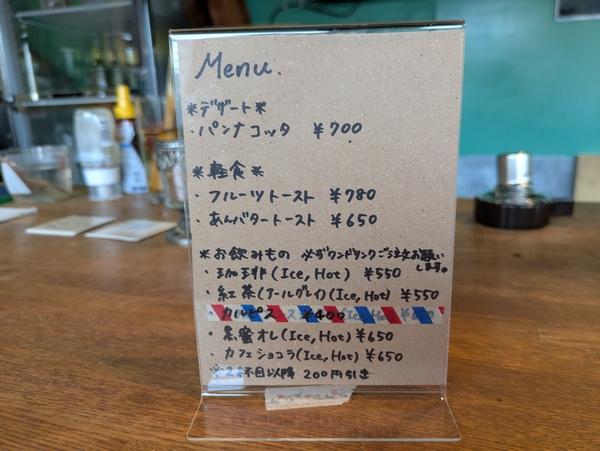 Menu.
＊デザート＊
・パンナコッタ ¥700
＊軽食＊
・フルーツトースト ¥780
・あんバタートースト ¥650
＊お飲みもの 必ずワンドリンクご注文お願い
します。
・珈琲(Ice, Hot) ¥550
・紅茶(アールグレイ)(Ice, Hot) ¥550
・カルピス ¥400
・黒蜜オレ(Ice, Hot) ¥650
・カフェショコラ(Ice, Hot) ¥650
※2杯目以降 200円引き